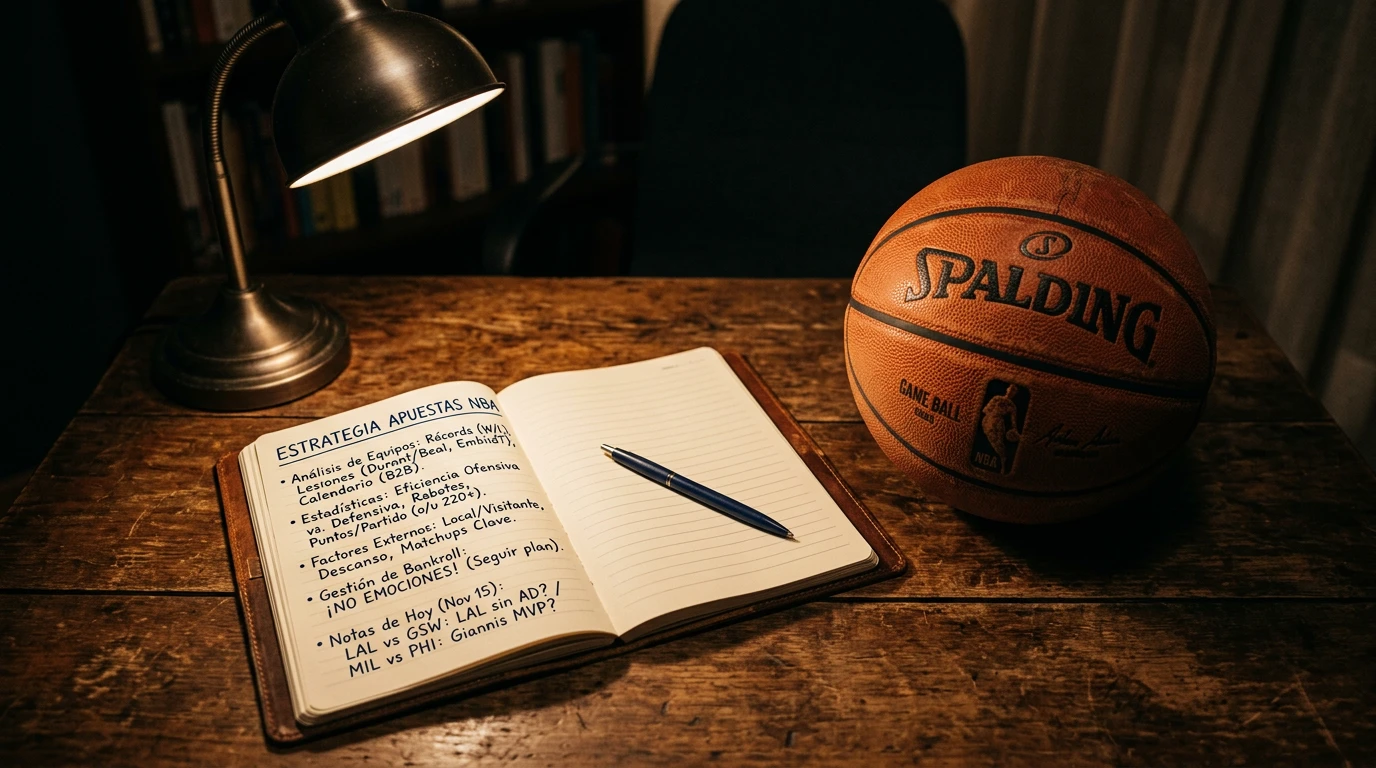 ESTRATEGIA APUESTAS NBA
• Análisis de Equipos: Récords (W/L),
Lesiones (Durant/Beal, Embiid),
Calendario (B2B).
• Estadísticas: Eficiencia Ofensiva
vs. Defensiva, Rebotes,
Puntos/Partido (o/u 220+).
• Factores Externos: Local/Visitante,
Descanso, Matchups Clave.
• Gestión de Bankroll:
¡NO EMOCIONES! (Seguir plan).
• Notas de Hoy (Nov 15):
LAL vs GSW: LAL sin AD? /
MIL vs PHI: Giannis MVP?
S
SPALDING
GAME BALL
NBA